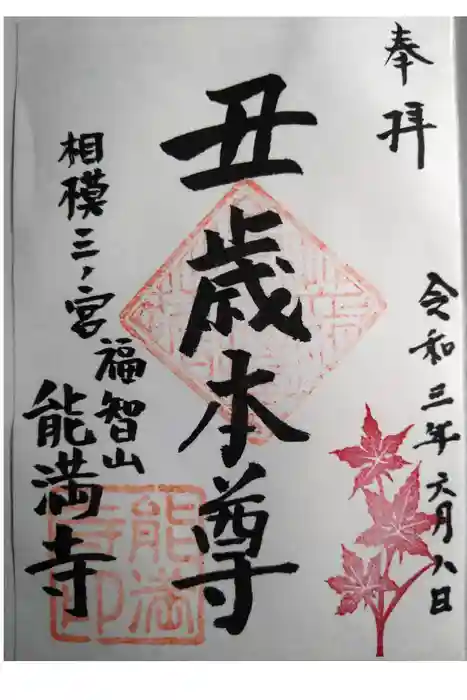 奉拝
令和三年六月八日
丑歳本尊
相模三ノ宮
福智山
能満寺
能満寺印